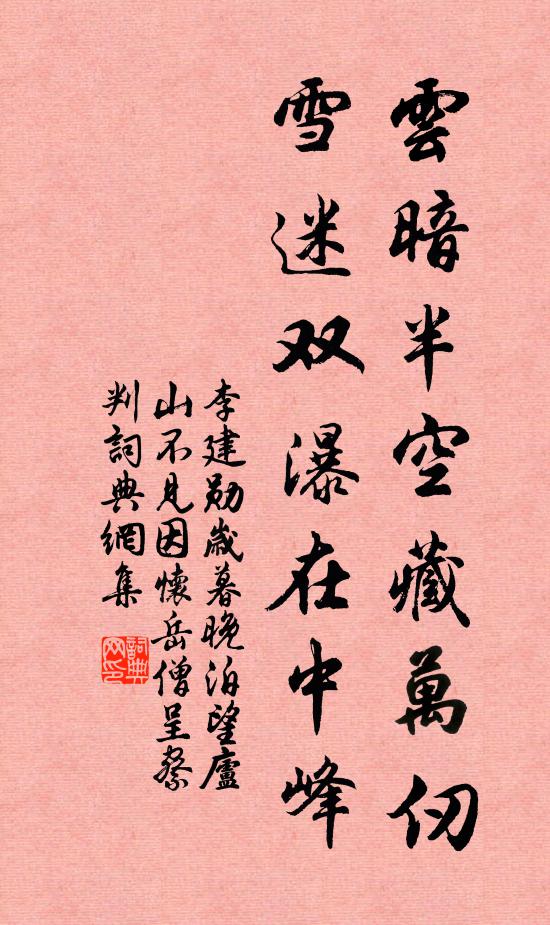 雲暗半空藏萬仞
雪迷双瀑在中峰
李建勛歲暮晚泊望廬
山不見因懷岳僧呈察
判詞典網集
詞典
网印